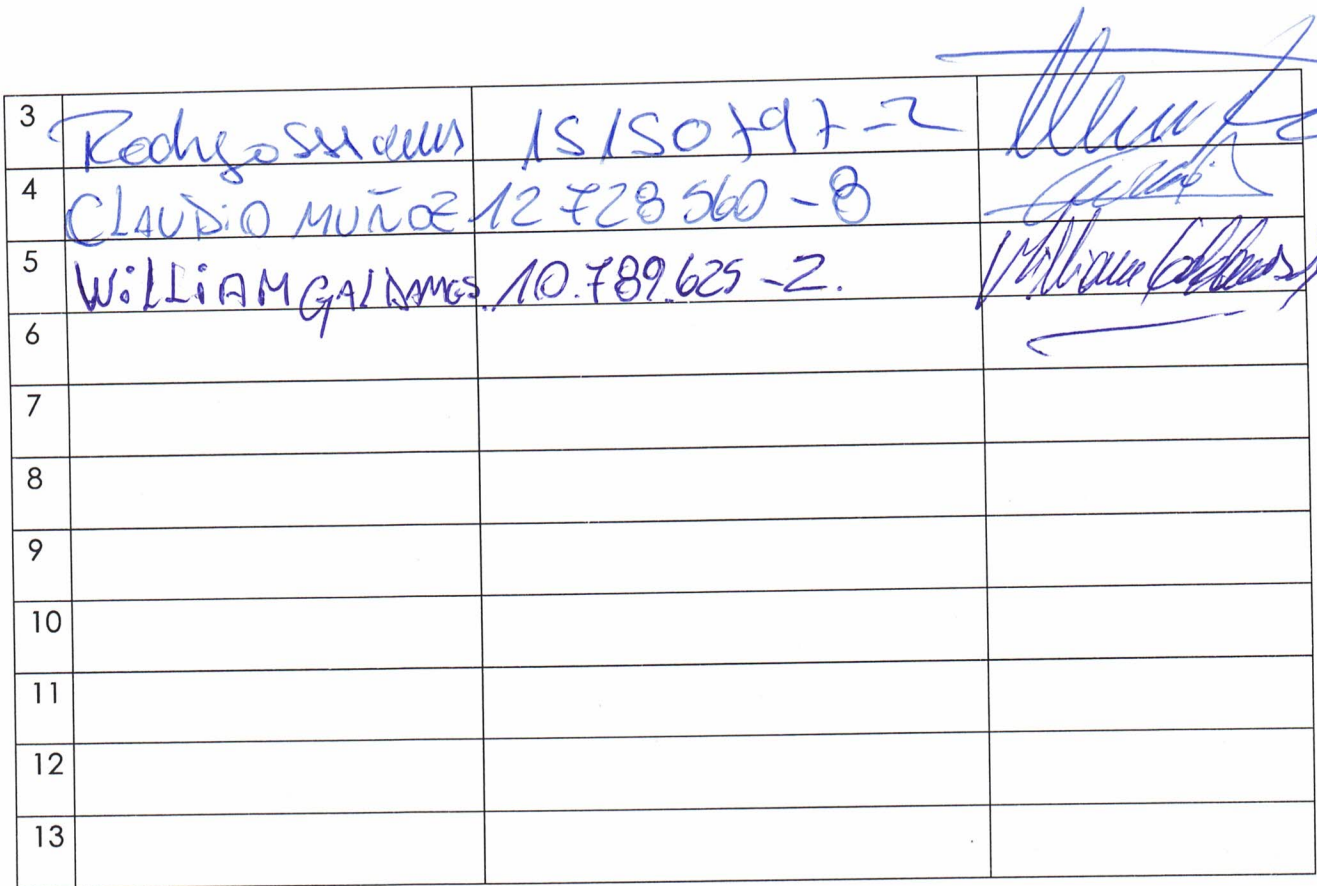 3 Rodrigo 15150797-2
4 CLAUDIO MUÑOZ 12728560-8
5 WILLIAM GALDAMES 10.789.625-2.
6
7
8
9
10
11
12
13